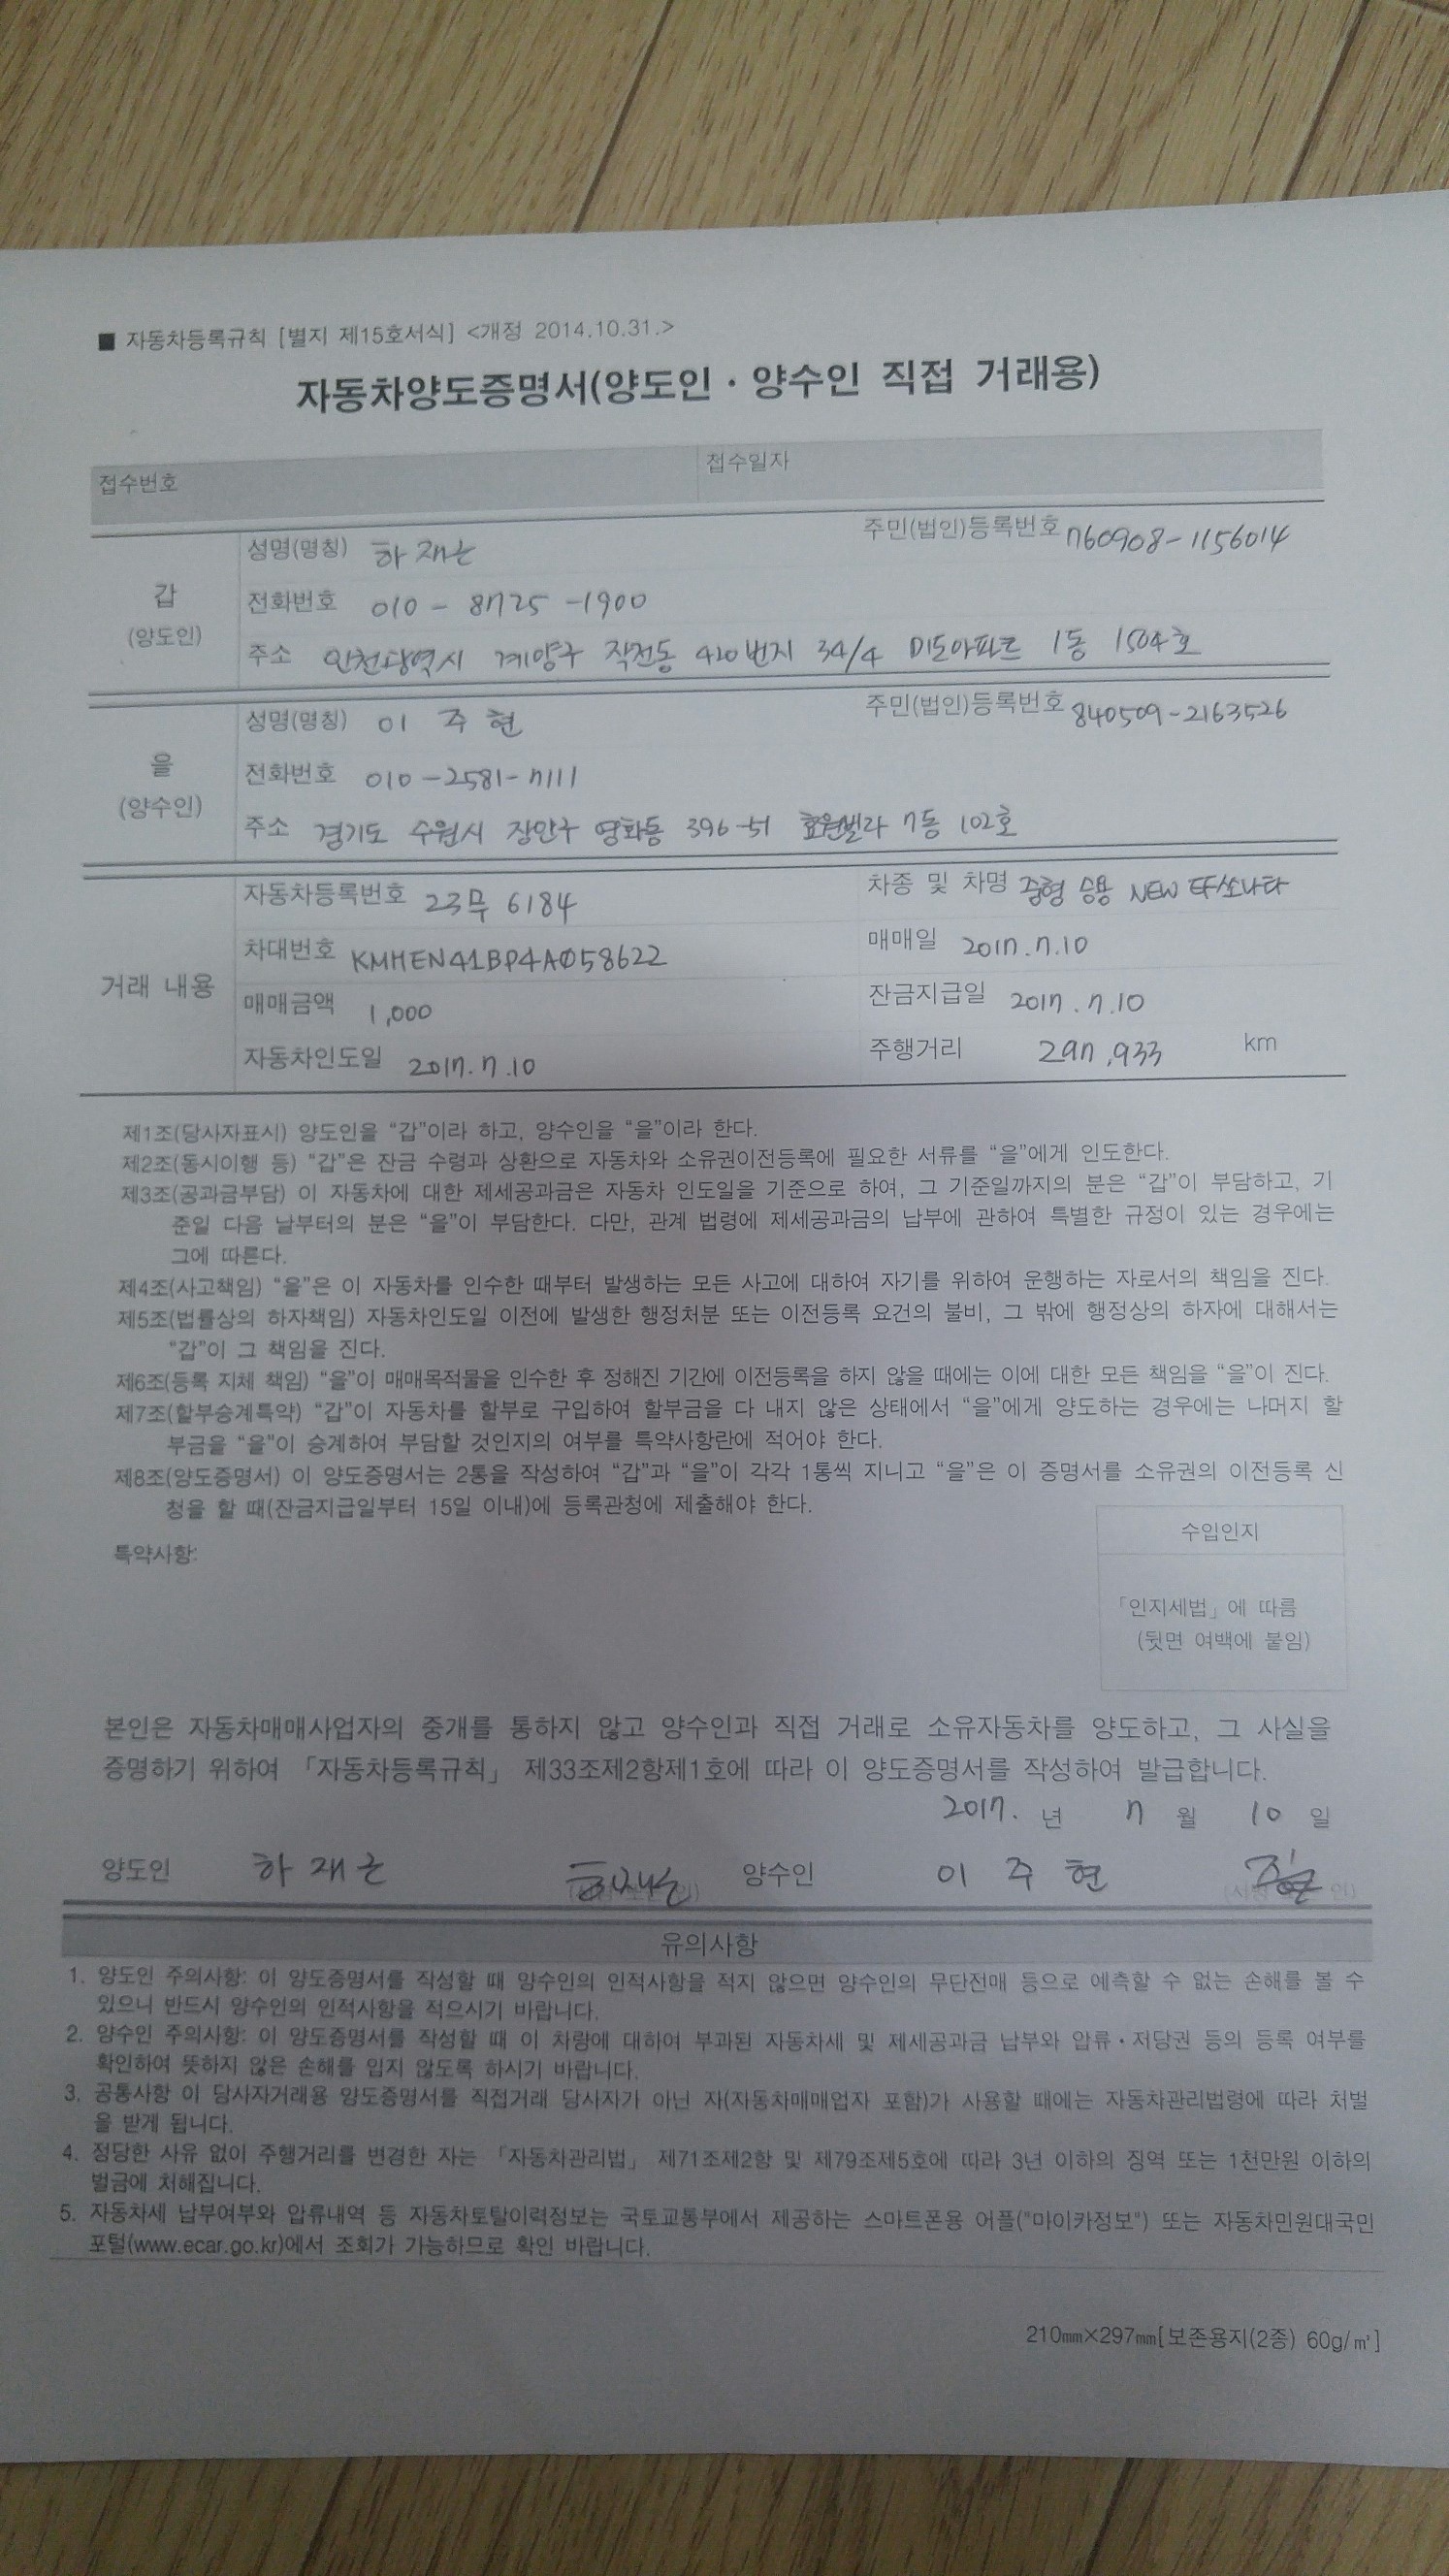 ■ 자동차등록규칙 [별지 제15호서식] <개정 2014.10.31.>
자동차양도증명서(양도인 · 양수인 직접 거래용)
접수번호 접수일자
갑 (양도인)
성명(명칭) 하재근 주민(법인)등록번호 760908-1156014
전화번호 010-8725-1900
주소 인천광역시 계양구 작전동 420번지 34/4 미도아파트 1동 1504호
을 (양수인)
성명(명칭) 이주현 주민(법인)등록번호 840509-2163526
전화번호 010-2581-7111
주소 경기도 수원시 장안구 영화동 396-51 효원빌라 7동 102호
거래 내용
자동차등록번호 23무 6184 차종 및 차명 중형 승용 NEW EF쏘나타
차대번호 KMHEN41BP4A058622 매매일 2017.7.10
매매금액 1,000 잔금지급일 2017.7.10
자동차인도일 2017.7.10 주행거리 297,933 km
제1조(당사자표시) 양도인을 “갑”이라 하고, 양수인을 “을”이라 한다.
제2조(동시이행 등) “갑”은 잔금 수령과 상환으로 자동차와 소유권이전등록에 필요한 서류를 “을”에게 인도한다.
제3조(공과금부담) 이 자동차에 대한 제세공과금은 자동차 인도일을 기준으로 하여, 그 기준일까지의 분은 “갑”이 부담하고, 기
준일 다음 날부터의 분은 “을”이 부담한다. 다만, 관계 법령에 제세공과금의 납부에 관하여 특별한 규정이 있는 경우에는
그에 따른다.
제4조(사고책임) “을”은 이 자동차를 인수한 때부터 발생하는 모든 사고에 대하여 자기를 위하여 운행하는 자로서의 책임을 진다.
제5조(법률상의 하자책임) 자동차인도일 이전에 발생한 행정처분 또는 이전등록 요건의 불비, 그 밖에 행정상의 하자에 대해서는
“갑”이 그 책임을 진다.
제6조(등록 지체 책임) “을”이 매매목적물을 인수한 후 정해진 기간에 이전등록을 하지 않을 때에는 이에 대한 모든 책임을 “을”이 진다.
제7조(할부승계특약) “갑”이 자동차를 할부로 구입하여 할부금을 다 내지 않은 상태에서 “을”에게 양도하는 경우에는 나머지 할
부금을 “을”이 승계하여 부담할 것인지의 여부를 특약사항란에 적어야 한다.
제8조(양도증명서) 이 양도증명서는 2통을 작성하여 “갑”과 “을”이 각각 1통씩 지니고 “을”은 이 증명서를 소유권의 이전등록 신
청을 할 때(잔금지급일부터 15일 이내)에 등록관청에 제출해야 한다.
특약사항:
수입인지
「인지세법」에 따름
(뒷면 여백에 붙임)
본인은 자동차매매사업자의 중개를 통하지 않고 양수인과 직접 거래로 소유자동차를 양도하고, 그 사실을
증명하기 위하여 「자동차등록규칙」 제33조제2항제1호에 따라 이 양도증명서를 작성하여 발급합니다.
2017. 년 7 월 10 일
양도인 하재근 하재근 양수인 이주현
유의사항
1. 양도인 주의사항: 이 양도증명서를 작성할 때 양수인의 인적사항을 적지 않으면 양수인의 무단전매 등으로 예측할 수 없는 손해를 볼 수
있으니 반드시 양수인의 인적사항을 적으시기 바랍니다.
2. 양수인 주의사항: 이 양도증명서를 작성할 때 이 차량에 대하여 부과된 자동차세 및 제세공과금 납부와 압류·저당권 등의 등록 여부를
확인하여 뜻하지 않은 손해를 입지 않도록 하시기 바랍니다.
3. 공통사항 이 당사자거래용 양도증명서를 직접거래 당사자가 아닌 자(자동차매매업자 포함)가 사용할 때에는 자동차관리법령에 따라 처벌
을 받게 됩니다.
4. 정당한 사유 없이 주행거리를 변경한 자는 「자동차관리법」 제71조제2항 및 제79조제5호에 따라 3년 이하의 징역 또는 1천만원 이하의
벌금에 처해집니다.
5. 자동차세 납부여부와 압류내역 등 자동차토탈이력정보는 국토교통부에서 제공하는 스마트폰용 어플("마이카정보") 또는 자동차민원대국민
포털(www.ecar.go.kr)에서 조회가 가능하므로 확인 바랍니다.
210㎜×297㎜[보존용지(2종) 60g/㎡]